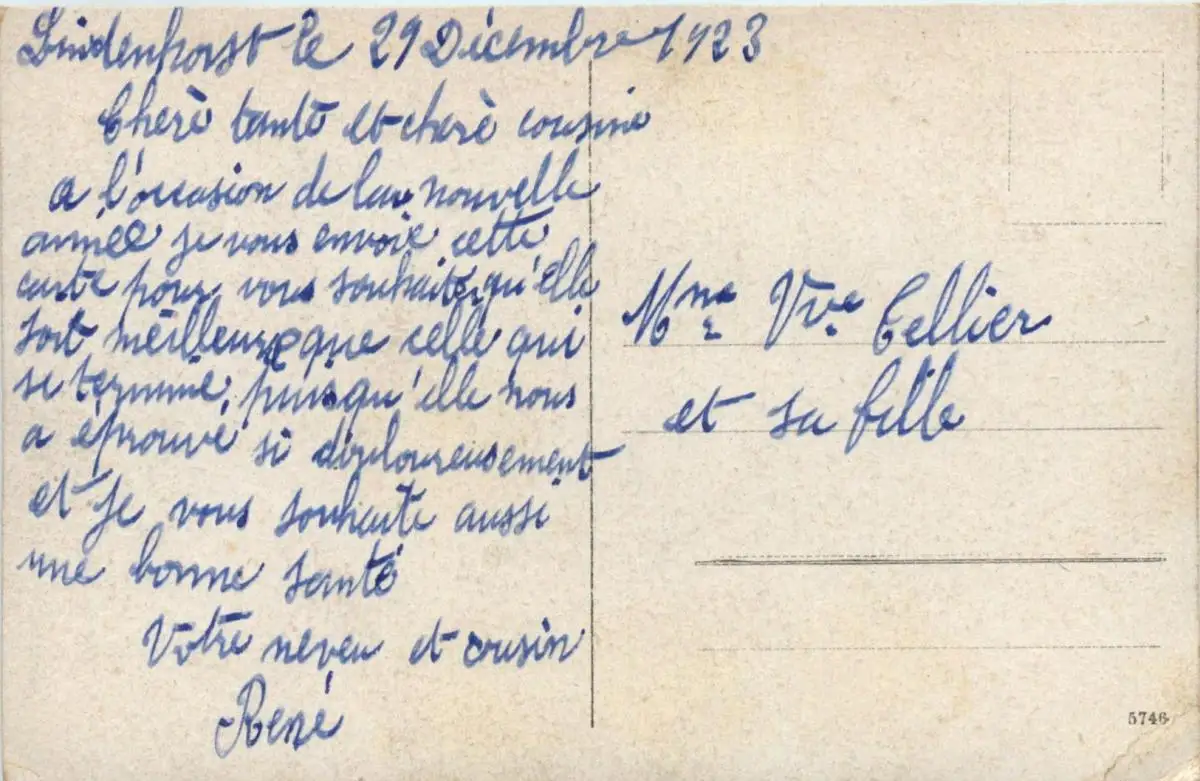 Lindenhorst le 29 Décembre 1923
Cherè tante et cherè cousine
a l'occasion de la nouvelle
année je vous envoie cette
carte pour vous souhaiter qu'elle
soit meilleure que celle qui
se termine, puisqu'elle nous
a éprouvé si douloureusement
et je vous souhaite aussi
une bonne santé
Votre neveu et cousin
René
Mme Vve Cellier
et sa fille
5746